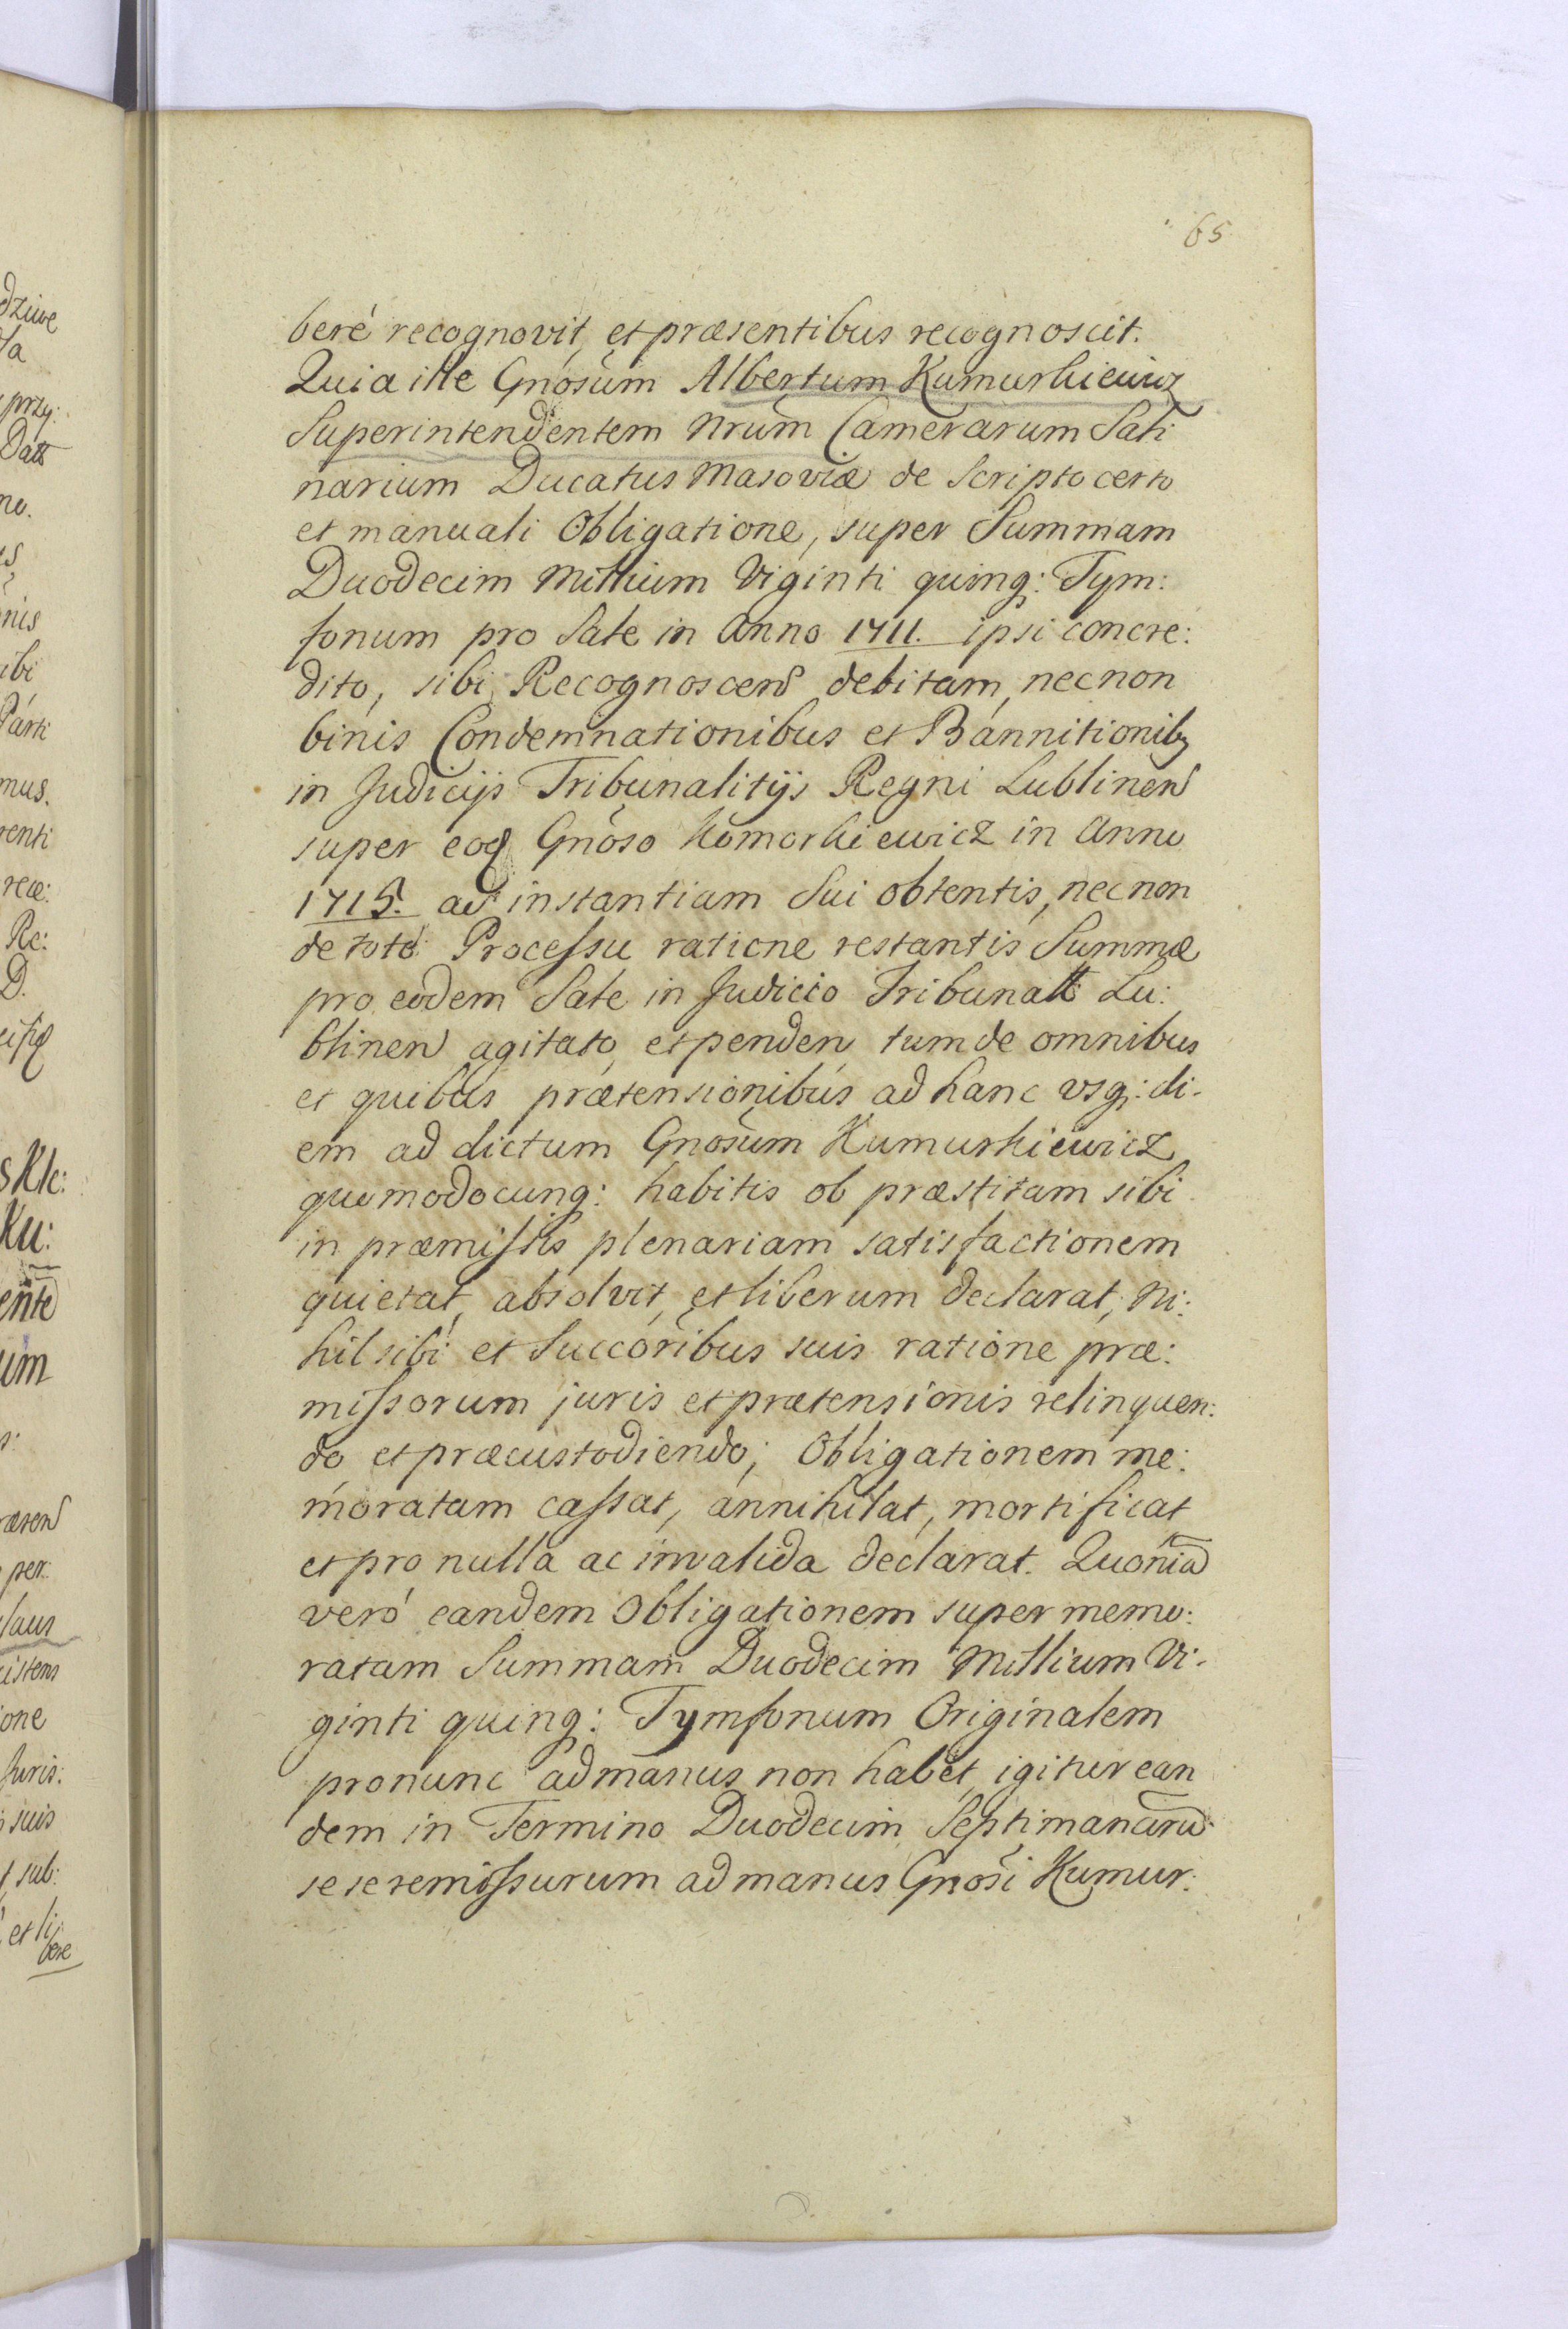 65
beré recognovit, et præsentibus recognoscit.
Quia ille Gnosum Albertum Kumurkiewicz
Superintendentem Nrum Camerarum Sali
narium Ducatus Masoviæ de Scripto certo
et manuali Obligatione, super Summam
Duodecim Millium Viginti quinq: Tym:
fonum pro Sale in Anno 1711. ipsi concre:
dito, sibi Recognoscen debitam, necnon
binis Condemnationibus et Bannitionib9
in Judicijs Tribunalitijs Regni Lublinen
super eod Gnoso Komorkiewicz in Anno
1715. ad instantiam Sui obtentis, necnon
de toto Processu ratione restantis Summæ
pro eodem Sale in Judicio Tribunall Lu:
blinen agitato, et penden, tum de omnibus
et quibus prætensionibus ad hanc usq: di-
em ad dictum Gnosum Kumurkiewicz
quomodocunq: habitis ob præstitam sibi
in præmissis plenariam satisfactionem
quietat, absolvit, et liberum declarat, Ni:
hil sibi et Succoribus suis ratione præ:
missorum juris et prætensionis relinquen:
do et præcustodiendo; Obligationem me:
moratam cassat, annihilat, mortificat
et pro nulla ac invalida declarat. Quonia
veró eandem Obligationem super memo:
ratam Summam Duodecim Millium Vi-
ginti quinq: Tymfonum Originalem
pronunc ad manus non habet, igitur ean
dem in Termino Duodecim Septimanaru
se se remissurum ad manus Gnosi Kumur: